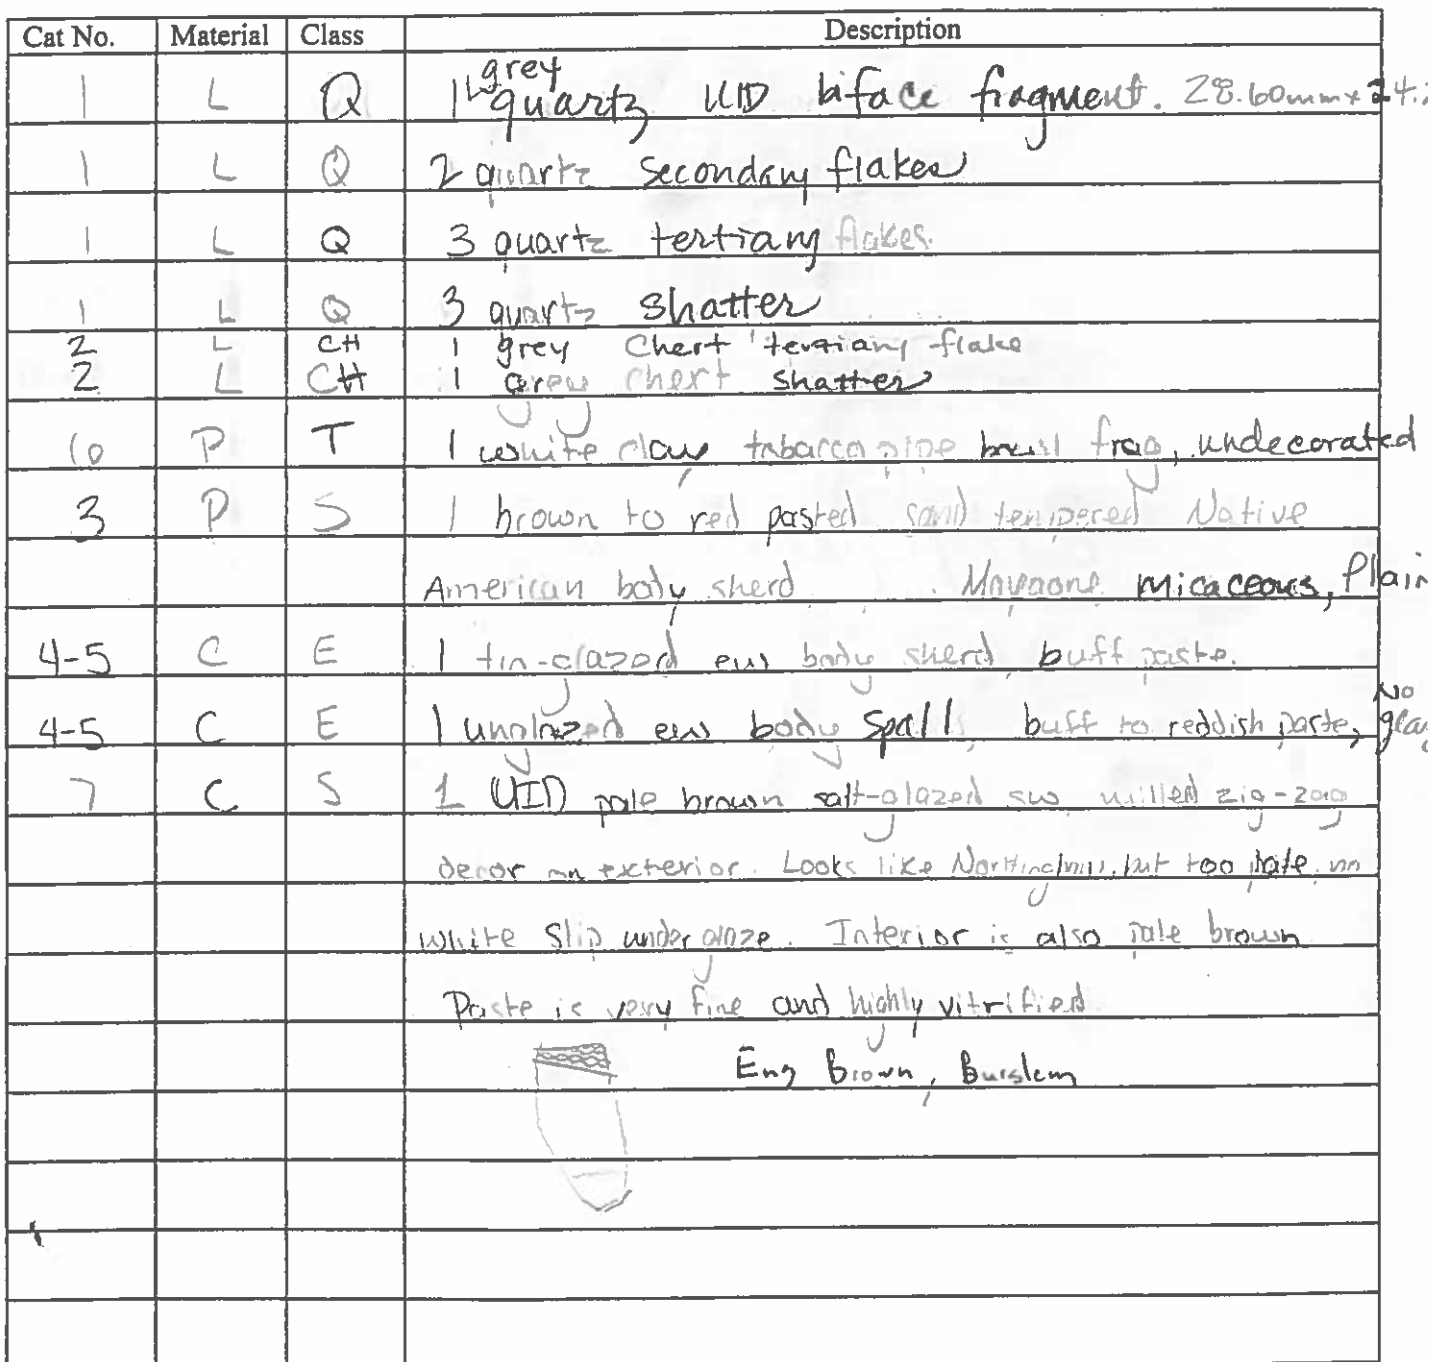 Cat No. Material Class Description
grey
1 L Q 1 quartz UID biface fragment. 28.60mm x 24.
1 L Q 2 quartz secondary flakes
1 L Q 3 quartz tertiary flakes.
1 L Q 3 quartz shatter
2 L CH 1 grey chert tertiary flake
2 L CH 1 grey chert shatter
10 P T 1 white clay tobacco pipe bowl frag, undecorated
3 P S 1 brown to red pasted sand tempered Native
American body sherd Moyaone micaceous, Plain
4-5 C E 1 tin-glazed ew body sherd, buff paste.
No
4-5 C E 1 unglazed ew body spall, buff to reddish paste,
7 C S 1 UID pale brown salt-glazed sw, milled zig-zag
decor on exterior. Looks like Nottingham, but too pale, no
white slip under glaze. Interior is also pale brown
Paste is very fine and highly vitrified
Eng Brown, Burslem